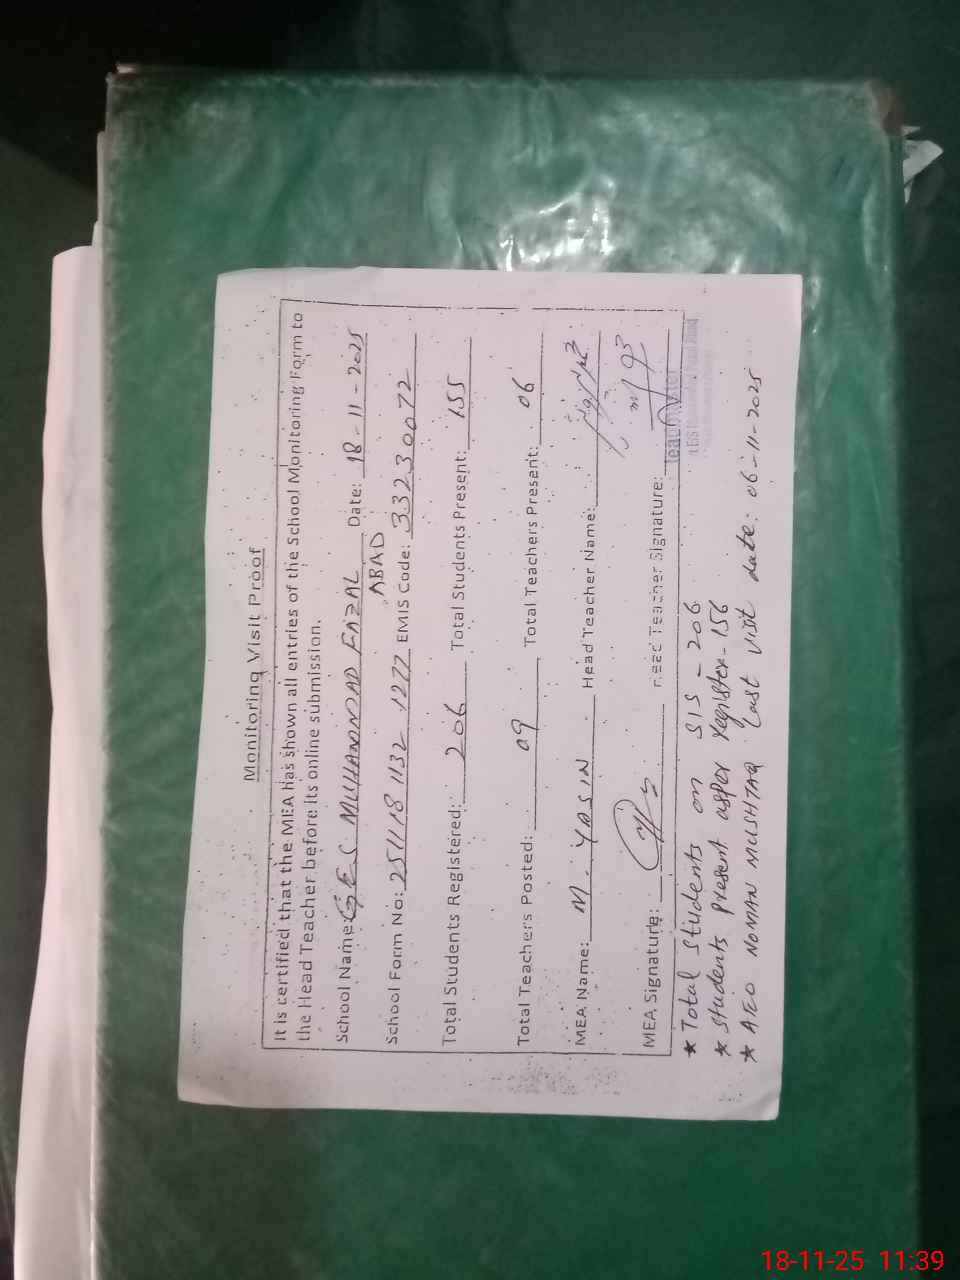 Monitoring Visit Proof
It is certified that the MEA has shown all entries of the School Monitoring Form to
the Head Teacher before its online submission.
School Name: GES MUHAMMAD FAZAL ABAD Date: 18-11-2025
School Form No: 251118 1132 1277 EMIS Code: 33230072
Total Students Registered: 206 Total Students Present: 155
Total Teachers Posted: 09 Total Teachers Present: 06
MEA Name: M. YASIN Head Teacher Name:
MEA Signature: Head Teacher Signature:
* Total students on SIS - 206
* students present asper register-156
* AEO NOMAN MUSHTAQ last visit date: 06-11-2025
18-11-25 11:39